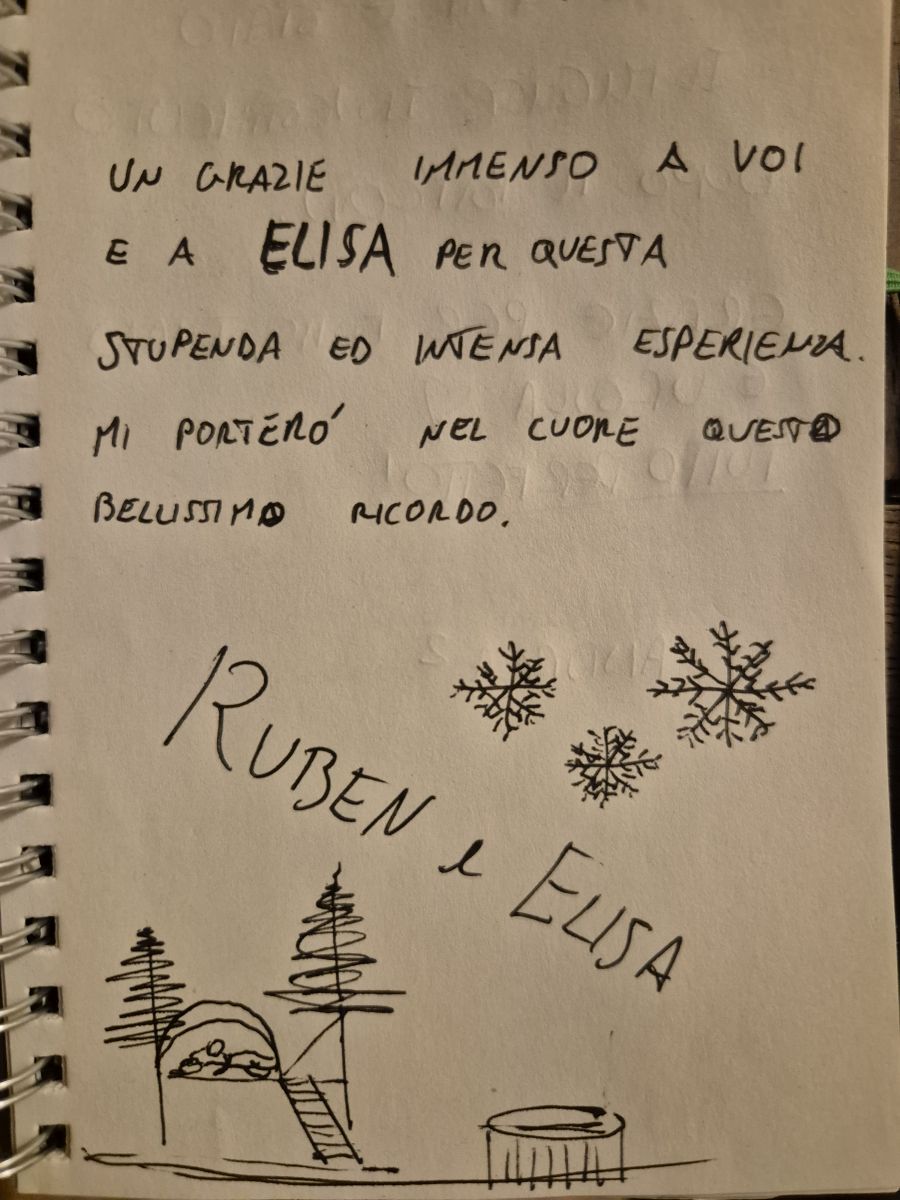 UN GRAZIE IMMENSO A VOI
E A ELISA PER QUESTA
STUPENDA ED INTENSA ESPERIENZA.
MI PORTERÓ NEL CUORE QUESTO
BELLISSIMO RICORDO.
RUBEN e ELISA